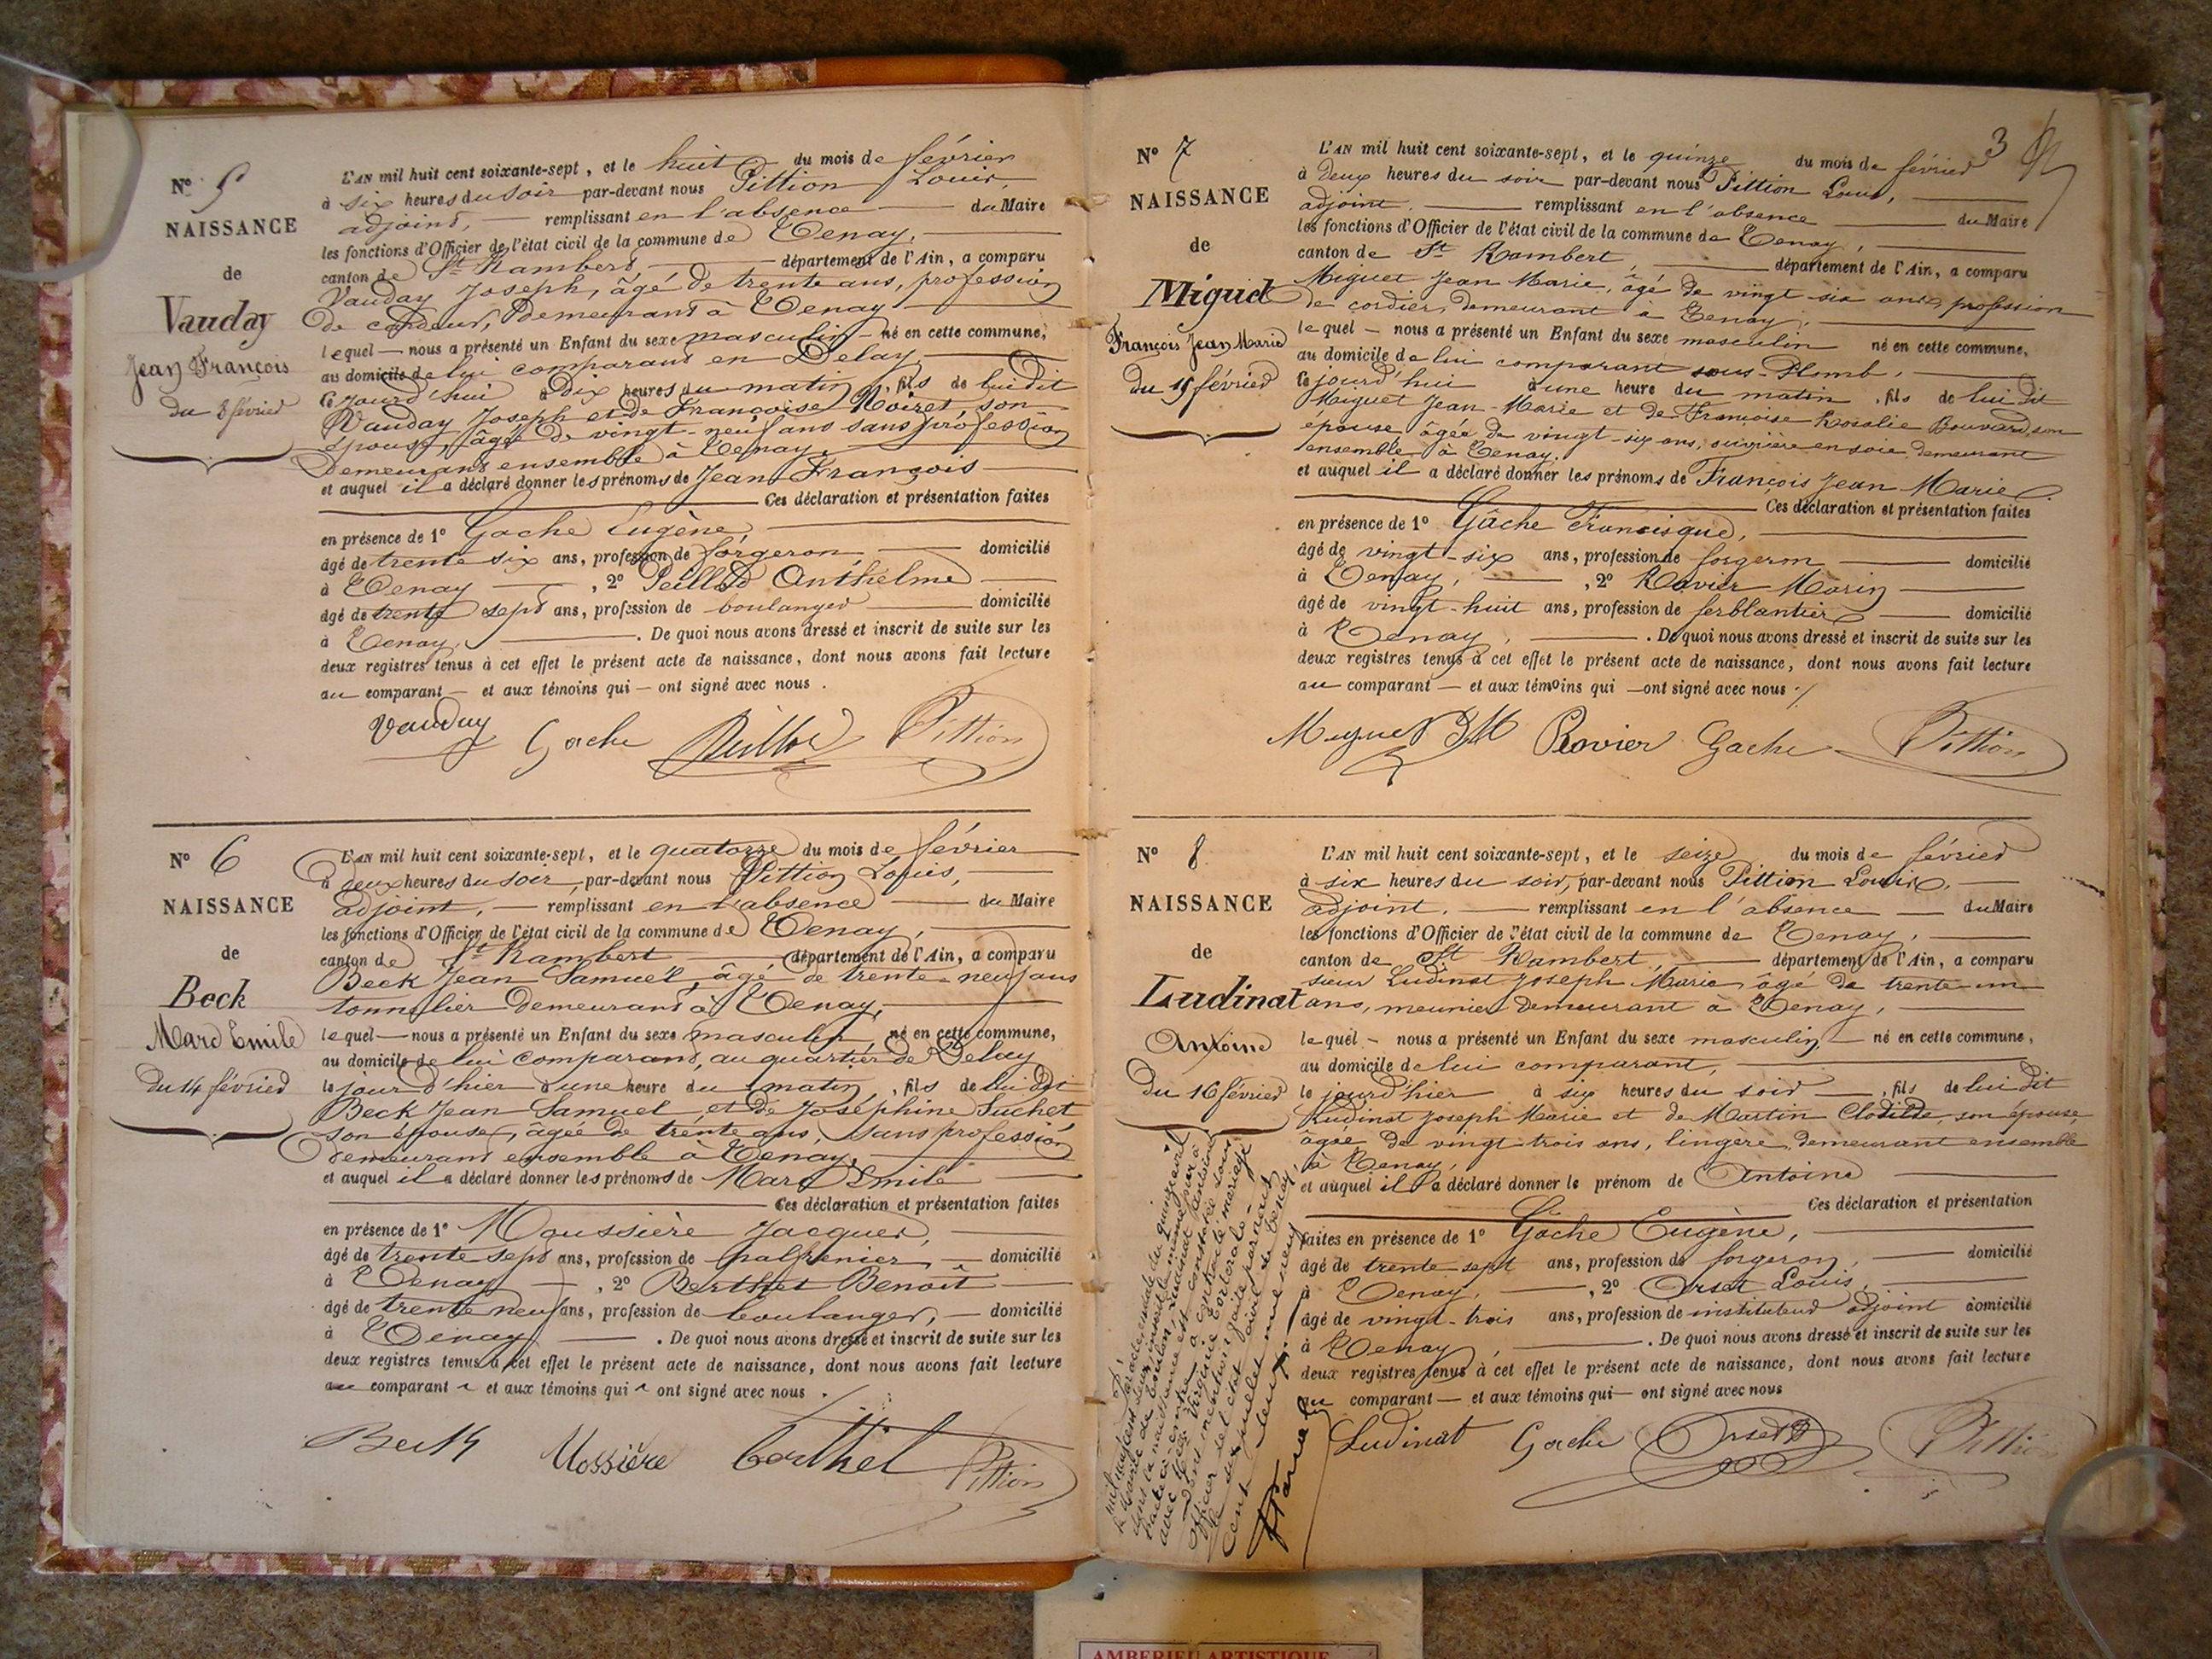 N° 5
NAISSANCE
de
Vauday
Jean François
du 8 février
L'AN mil huit cent soixante-sept, et le huit du mois de février
à six heures du soir par-devant nous Pittion Louis,
adjoint, remplissant en l'absence du Maire
les fonctions d'Officier de l'état civil de la commune de Tenay,
canton de St Rambert département de l'Ain, a comparu
Vauday Joseph, âgé de trente ans, profession
de cardeur, demeurant à Tenay
lequel nous a présenté un Enfant du sexe masculin né en cette commune,
au domicile de lui comparant en Delay
le jourd'hui à dix heures du matin, fils de lui dit
Vauday Joseph et de Françoise Noizet, son
épouse, âgée de vingt-neuf ans sans profession
demeurant ensemble à Tenay.
et auquel il a déclaré donner les prénoms de Jean François
Ces déclaration et présentation faites
en présence de 1° Gache Eugène
âgé de trente six ans, profession de forgeron, domicilié
à Tenay, 2° Peillod Anthelme
âgé de trente sept ans, profession de boulanger domicilié
à Tenay. De quoi nous avons dressé et inscrit de suite sur les
deux registres tenus à cet effet le présent acte de naissance, dont nous avons fait lecture
au comparant et aux témoins qui ont signé avec nous.
Vauday Gache Peillod Pittion
N° 6
NAISSANCE
de
Beck
Marc Emile
du 14 février
L'AN mil huit cent soixante-sept, et le quatorze du mois de février
à deux heures du soir, par-devant nous Pittion Louis,
adjoint, remplissant en l'absence du Maire
les fonctions d'Officier de l'état civil de la commune de Tenay,
canton de St Rambert département de l'Ain, a comparu
Beck Jean Samuel, âgé de trente-neuf ans
tonnelier demeurant à Tenay,
lequel nous a présenté un Enfant du sexe masculin, né en cette commune,
au domicile de lui comparant, au quartier de Delay
le jour d'hier à une heure du matin, fils de lui dit
Beck Jean Samuel et de Joséphine Suchet
son épouse, âgée de trente ans, sans profession
demeurant ensemble à Tenay.
et auquel il a déclaré donner les prénoms de Marc Emile
Ces déclaration et présentation faites
en présence de 1° Moussière Jacques,
âgé de trente sept ans, profession de palfrenier, domicilié
à Tenay, 2° Berthet Benoît
âgé de trente neuf ans, profession de boulanger, domicilié
à Tenay. De quoi nous avons dressé et inscrit de suite sur les
deux registres tenus à cet effet le présent acte de naissance, dont nous avons fait lecture
au comparant et aux témoins qui ont signé avec nous.
Beck Mossière Berthet Pittion
3
N° 7
NAISSANCE
de
Miguet
François Jean Marie
du 15 février
L'AN mil huit cent soixante-sept, et le quinze du mois de février
à deux heures du soir par-devant nous Pittion Louis,
adjoint. remplissant en l'absence du Maire
les fonctions d'Officier de l'état civil de la commune de Tenay,
canton de St Rambert, département de l'Ain, a comparu
Miguet Jean Marie, âgé de vingt-six ans, profession
de cordier, demeurant à Tenay,
lequel nous a présenté un Enfant du sexe masculin né en cette commune,
au domicile de lui comparant sous-Plomb,
le jourd'hui à une heure du matin, fils de lui dit
Miguet Jean-Marie et de Françoise Rosalie Bouvard, son
épouse, âgée de vingt-six ans, ouvrière en soie demeurant
ensemble à Tenay.
et auquel il a déclaré donner les prénoms de François Jean Marie.
Ces déclaration et présentation faites
en présence de 1° Gâche Francisque,
âgé de vingt-six ans, profession de forgeron domicilié
à Tenay, 2° Rovier Marin
âgé de vingt-huit ans, profession de ferblantier domicilié
à Tenay, . De quoi nous avons dressé et inscrit de suite sur les
deux registres tenus à cet effet le présent acte de naissance, dont nous avons fait lecture
au comparant et aux témoins qui ont signé avec nous
Miguet JM Rovier Gache Pittion
N° 8
NAISSANCE
de
Ludinat
Antoine
Du 16 février
L'AN mil huit cent soixante-sept, et le seize du mois de février
à six heures du soir, par-devant nous Pittion Louis,
adjoint. remplissant en l'absence du Maire
les fonctions d'Officier de l'état civil de la commune de Tenay,
canton de St Rambert, département de l'Ain, a comparu
sieur Ludinat Joseph Marie, âgé de trente-un
ans, meunier demeurant à Tenay,
lequel nous a présenté un Enfant du sexe masculin, né en cette commune,
au domicile de lui comparant,
le jourd'hier à six heures du soir, fils de lui dit
Ludinat Joseph Marie et de Martin Clotilde, son épouse,
âgée de vingt-trois ans, lingère, demeurant ensemble
à Tenay,
et auquel il a déclaré donner le prénom de Antoine
Ces déclaration et présentation
faites en présence de 1° Gâche Eugène,
âgé de trente sept ans, profession de forgeron, domicilié
à Tenay, 2° Orset Louis,
âgé de vingt-trois ans, profession de instituteur adjoint domicilié
à Tenay, . De quoi nous avons dressé et inscrit de suite sur les
deux registres tenus à cet effet le présent acte de naissance, dont nous avons fait lecture
au comparant et aux témoins qui ont signé avec nous
Ludinat Gache Orset Pittion
AMBERIEU ARTISTIQUE